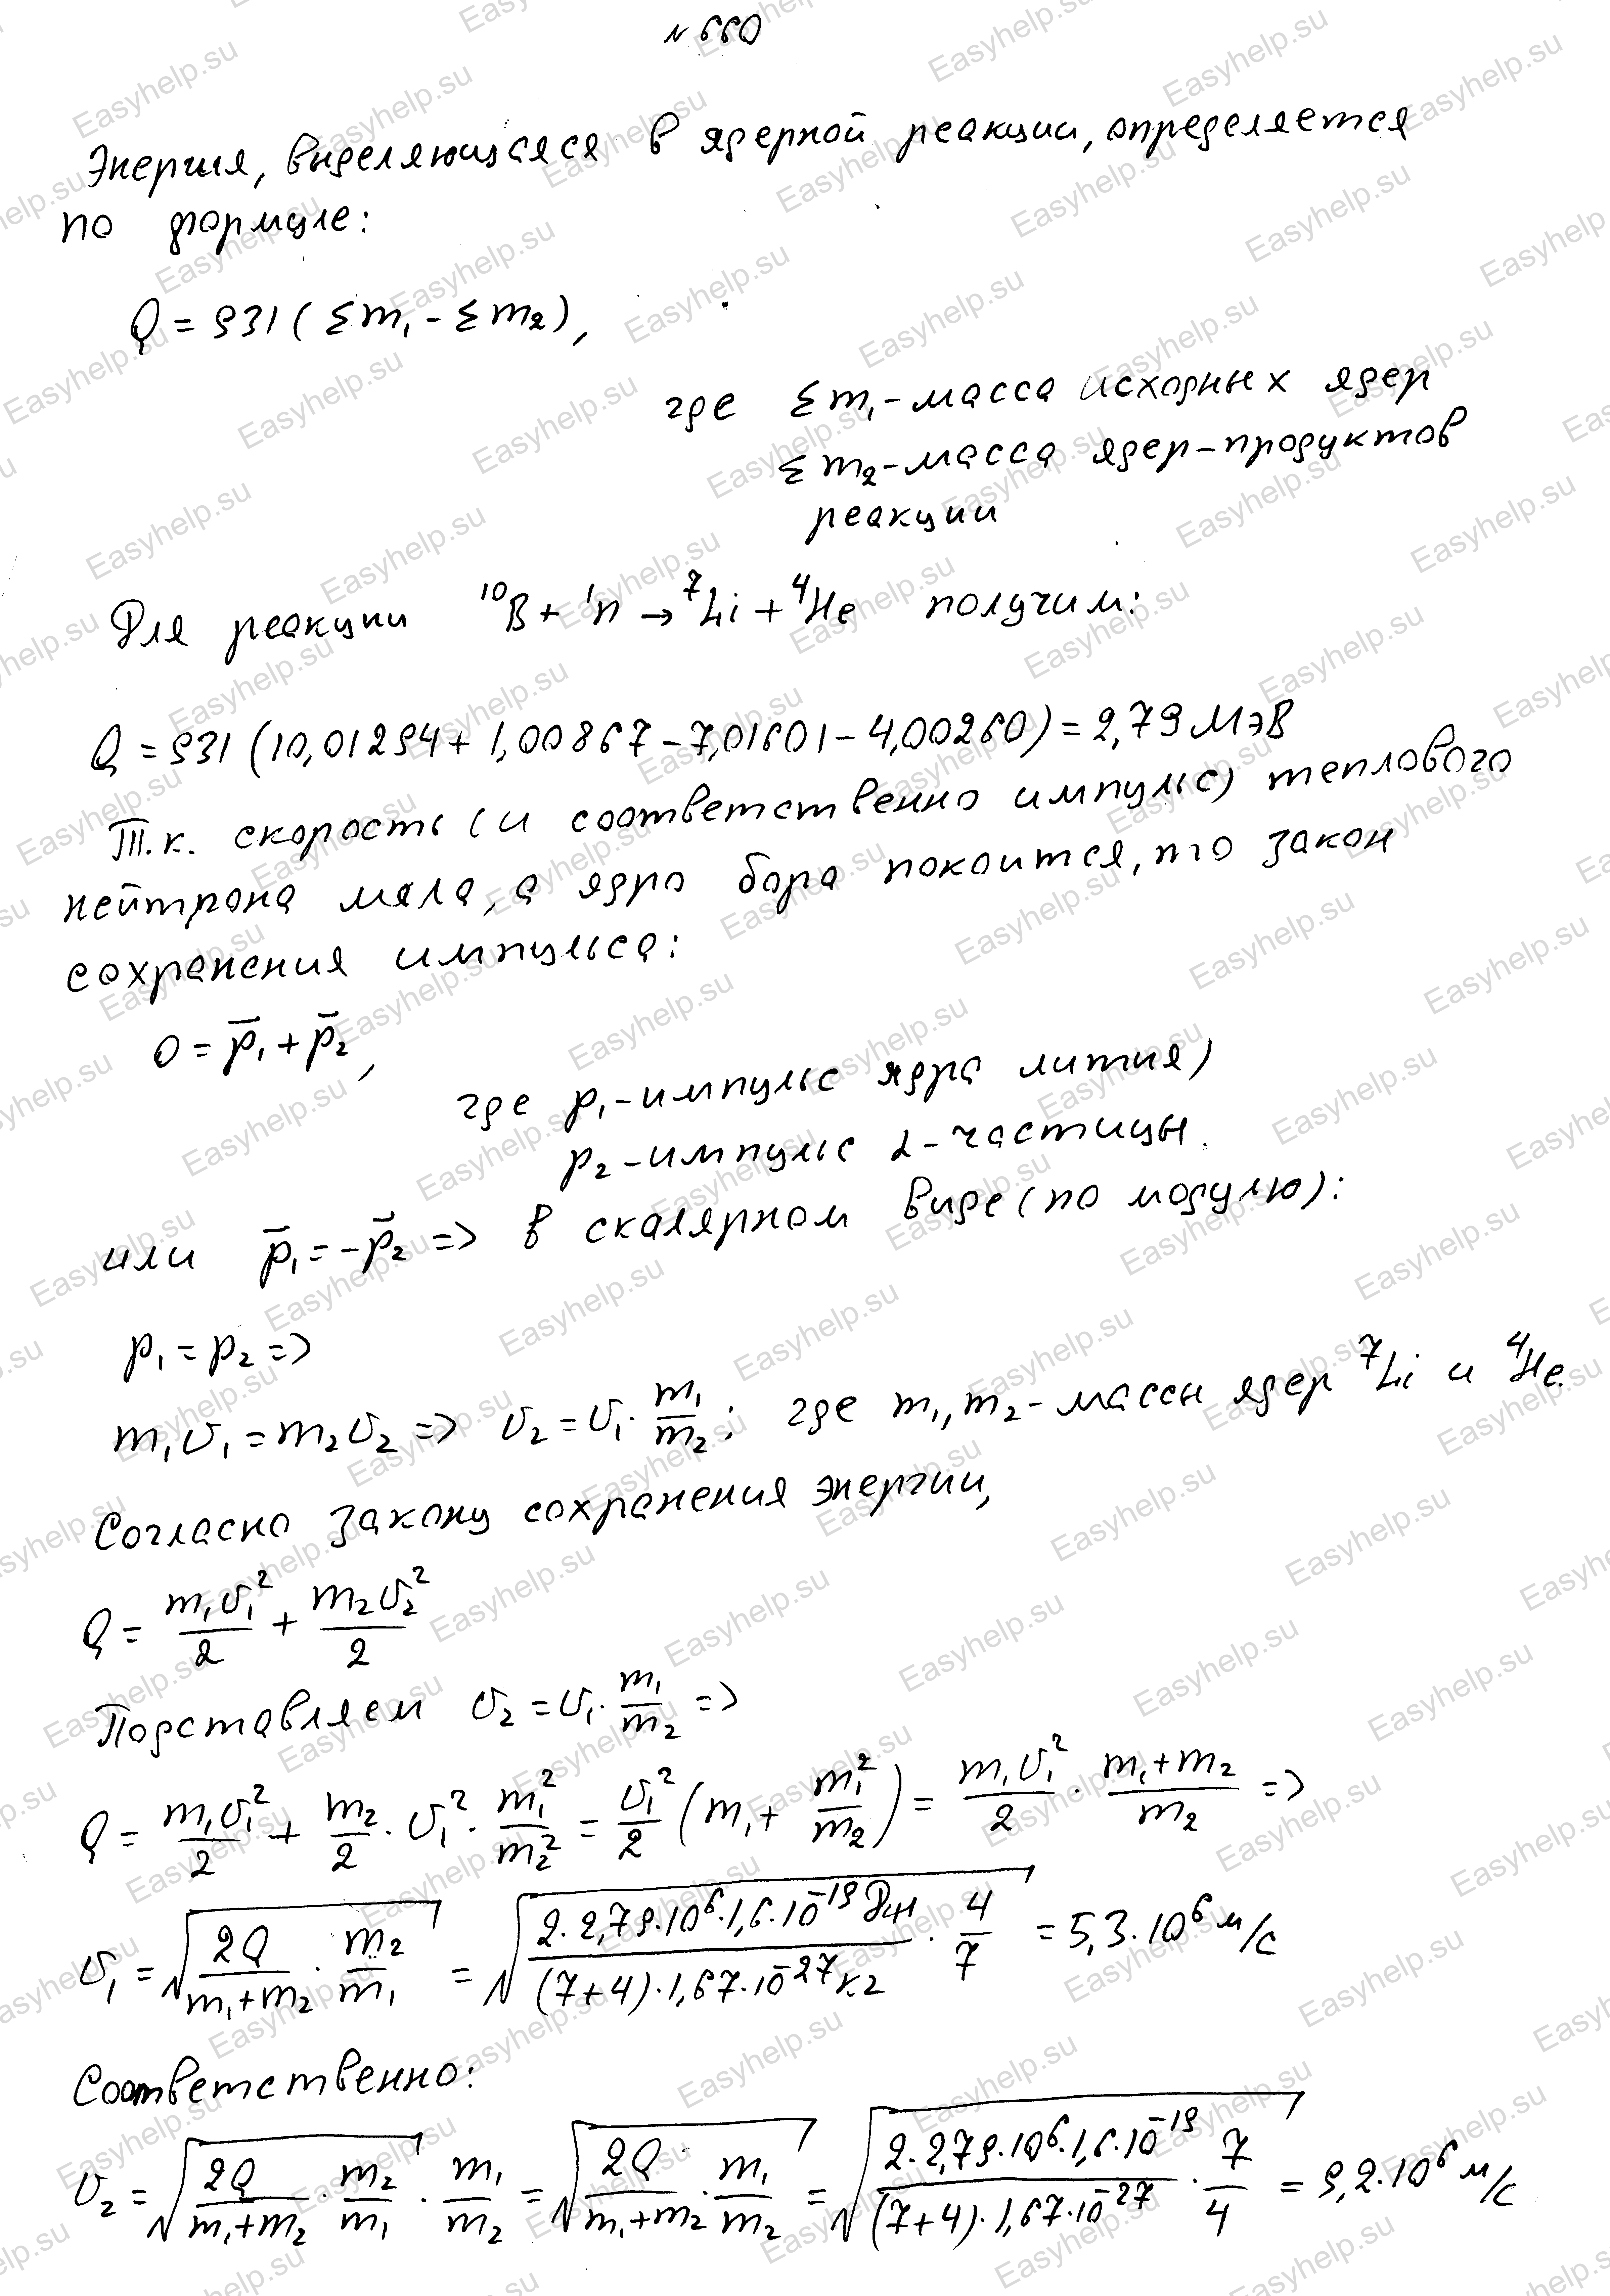 № 660
Энергия, выделяющаяся в ядерной реакции, определяется
по формуле:
Q = 931 ( Σm₁ - Σm₂),
где Σm₁ - масса исходных ядер
Σm₂ - масса ядер-продуктов
реакции
Для реакции ¹⁰B + ¹n → ⁷Li + ⁴He получим:
Q = 931 (10,01294 + 1,00867 - 7,01601 - 4,00260) = 2,79 МэВ
Т.к. скорость (и соответственно импульс) теплового
нейтрона мала, а ядро бора покоится, то закон
сохранения импульса:
0 = p̄₁ + p̄₂,
где p₁ - импульс ядра лития)
p₂ - импульс α-частицы.
или p̄₁ = -p̄₂ => в скалярном виде (по модулю):
p₁ = p₂ =>
m₁υ₁ = m₂υ₂ => υ₂ = υ₁ · m₁/m₂; где m₁, m₂ - массы ядер ⁷Li и ⁴He.
Согласно закону сохранения энергии,
Q = m₁υ₁²/2 + m₂υ₂²/2
Подставляем υ₂ = υ₁ · m₁/m₂ =>
Q = m₁υ₁²/2 + m₂/2 · υ₁² · m₁²/m₂² = υ₁²/2 (m₁ + m₁²/m₂) = m₁υ₁²/2 · (m₁+m₂)/m₂ =>
υ₁ = √(2Q/(m₁+m₂) · m₂/m₁) = √(2·2,79·10⁶·1,6·10⁻¹⁹ Дж/((7+4)·1,67·10⁻²⁷ кг) · 4/7) = 5,3·10⁶ м/с
Соответственно:
υ₂ = √(2Q/(m₁+m₂) · m₂/m₁) · m₁/m₂ = √(2Q/(m₁+m₂) · m₁/m₂) = √(2·2,79·10⁶·1,6·10⁻¹⁹/((7+4)·1,67·10⁻²⁷) · 7/4) = 9,2·10⁶ м/с
Easyhelp.su